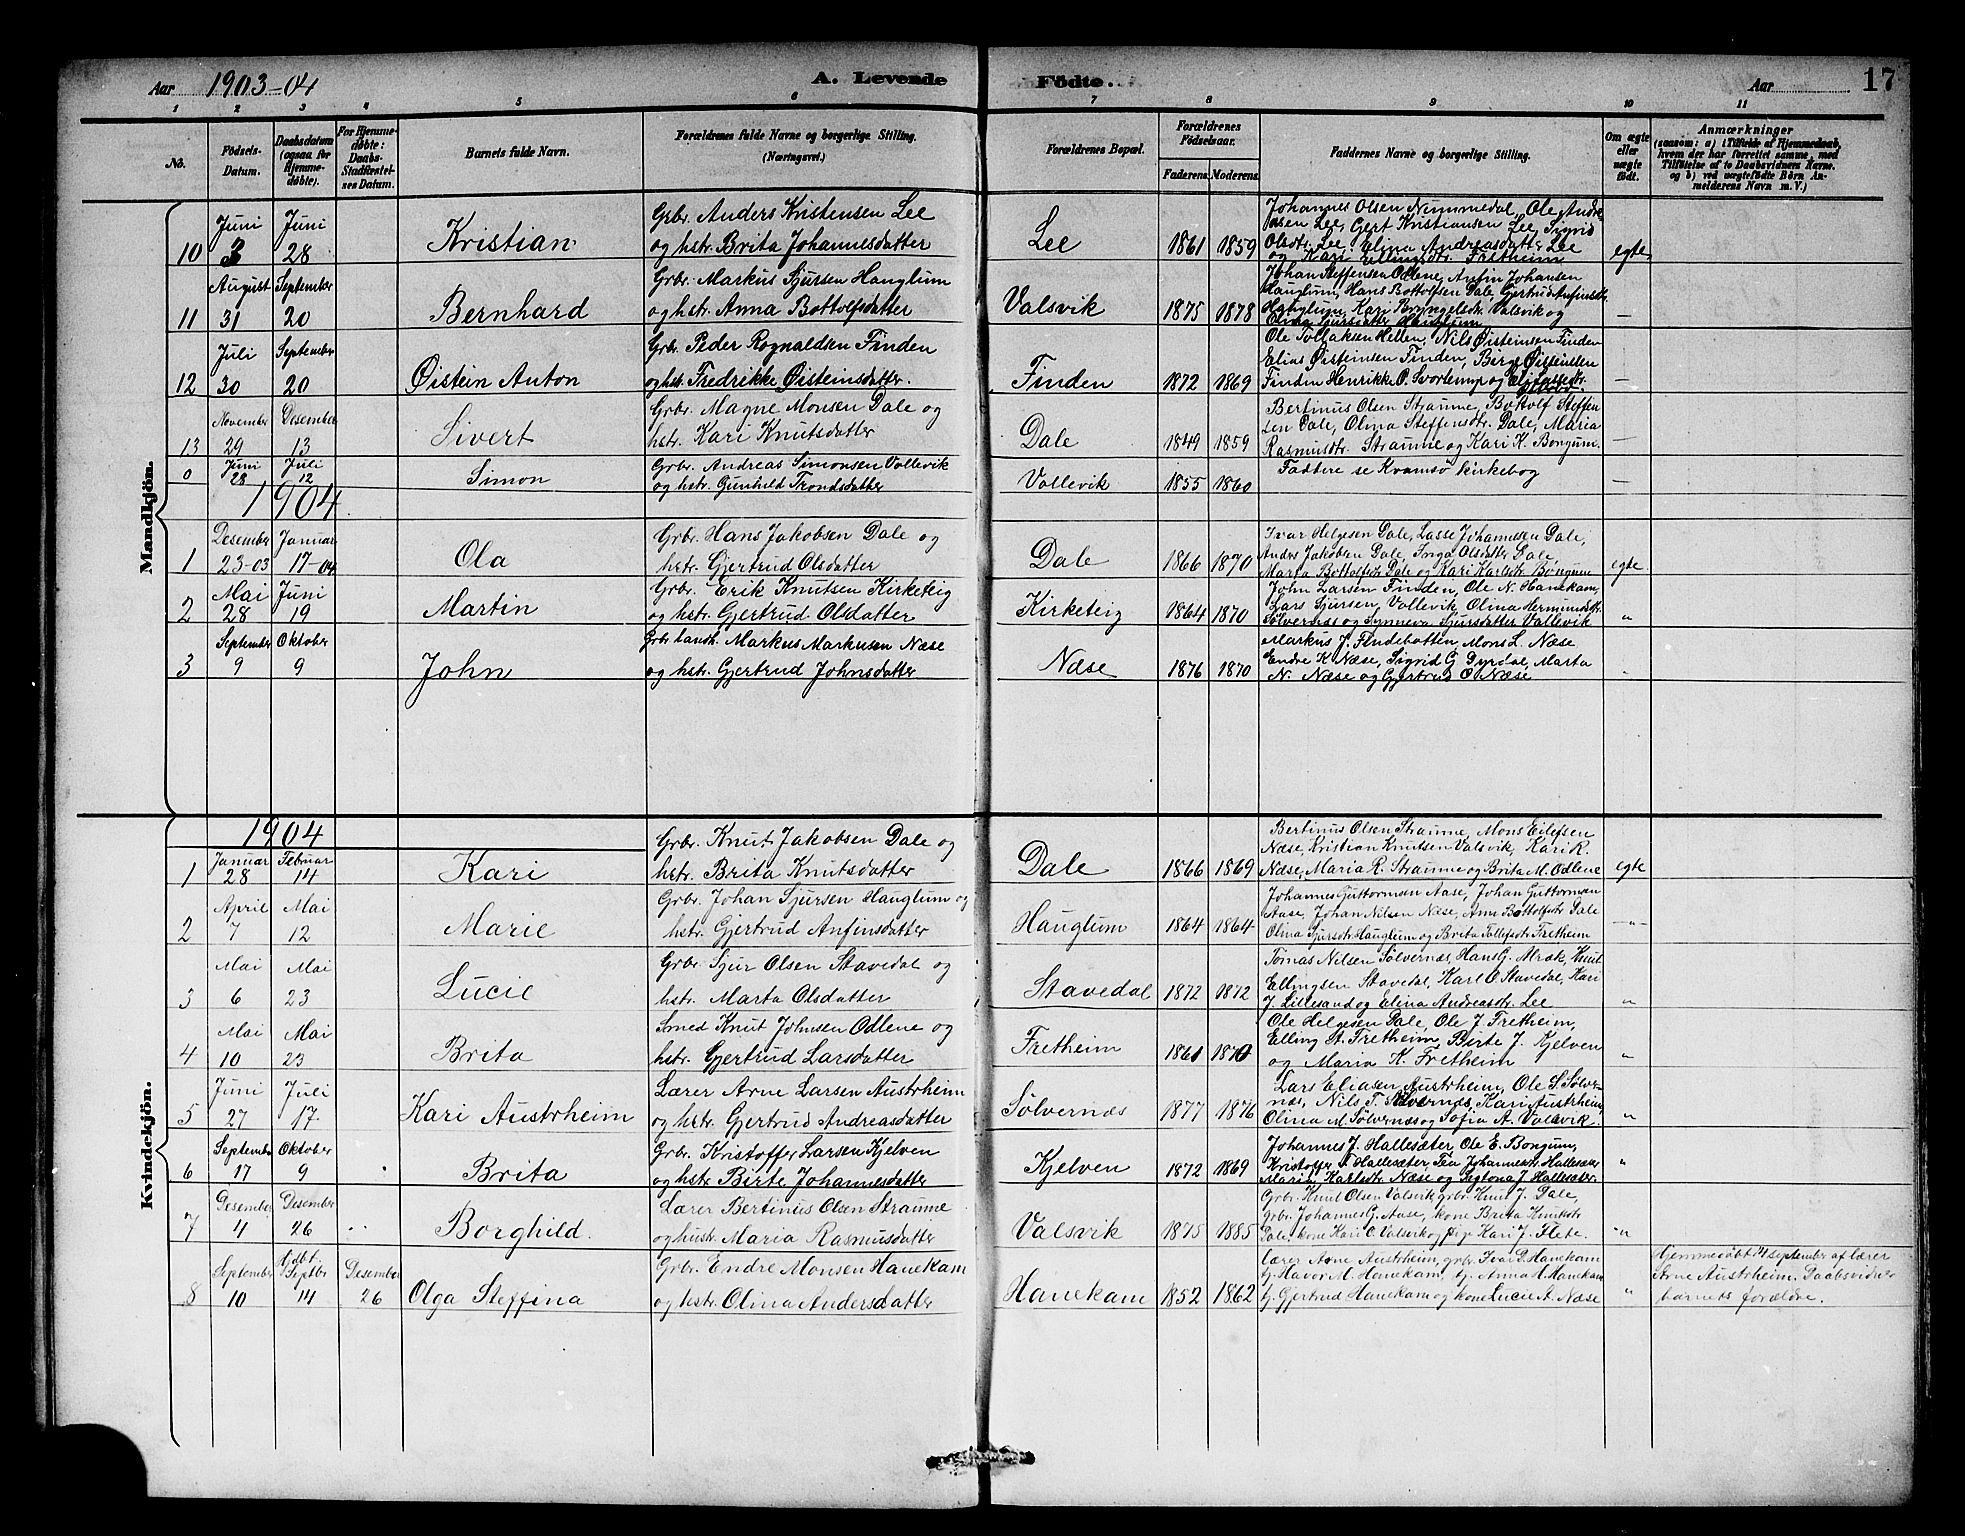 Aar 1903-04 A. Levende Födte. Aar 17
1 2 3 4 5 6 7 8 9 10 11
No. Födsels-Datum. Daabsdatum (ogsaa for Hjemmedöbte). For Hjemmedöbte: Daabs-Stadfæstelses Datum. Barnets fulde Navn. Forældrenes fulde Navne og borgerlige Stilling. (Næringsvei.) Forældrenes Bopæl. Forældrenes Födselsaar. Faderens. Moderens. Faddernes Navne og borgerlige Stilling. Om ægte eller uægte födt. Anmærkninger (saasom: a) i Tilfælde af Hjemmedaab, hvem der har forrettet samme, med Tilföielse af to Daabsvidners Navne. og b) ved uægtefödte Börn Anmelderens Navn m. V.)
Mandkjön.
10 Juni 3 Juni 28 Kristian Grbr. Anders Kristensen Lee og hstr. Brita Johannesdatter Lee 1861 1859 Johannes Olsen Nummedal, Ole Andreasen Lee, Gert Kristiansen Lee, Sigrid Olsdtr. Lee, Elina Andreasdatter Lee og Kari Ellingsdtr. Fastheim egte
11 August 31 September 20 Bernhard Grbr. Markus Sjursen Hauglum og hstr. Anna Bottolfsdatter Valsvik 1875 1878 Johan Steffensen Odlene, Anfin Johansen Hauglum, Hans Bottolfsen Dale, Gjertrud Anfinsdtr. Hauglum, Kari Bryngelsdtr. Valsvik og Olina Sjursdatter Hauglum —
12 Juli 30 September 20 Øistein Anton Grbr. Peder Rognaldsen Finden og hstr. Fredrikke Øisteinsdatter. Finden 1872 1869 Ole Tollaksen Hellen, Nils Øisteinsen Finden Elias Øisteinsen Finden, Børge Øisteinsen Finden Henrikke P. Svortemyr og —
13 November 29 Desember 13 Sivert Grbr. Magne Monsen Dale og hstr. Kari Knutsdatter Dale 1849 1859 Bertinus Olsen Straume, Bottolf Steffensen Dale, Olina Steffensdtr. Dale, Maria Rasmusdtr. Straume og Kari K. Bongum. —
0 Juni 28 Juli 12 Simon Grbr. Andreas Simonsen Vollevik og hstr. Gunhild Trondsdatter Vollevik 1855 1860 Faddere se Kvamsø kirkebog —
1904
1 Desember 23-03 Januar 17-04 Ola Grbr. Hans Jakobsen Dale og hstr. Gjertrud Olsdatter Dale 1866 1870 Ivar Helgesen Dale, Lasse Johannesen Dale, Anders Jakobsen Dale, Inga Olsdatter Dale, Marta Bottolfsdtr Dale og Kari Karlsdtr. Bongum egte
2 Mai 28 Juni 19 Martin Grbr. Erik Knutsen Kirketeig og hstr. Gjertrud Olsdatter Kirketeig 1864 1870 John Larsen Finden, Ole N. Hanekam, Lars Sjursen, Vollevik, Olina Hermundsdtr. Sølvernæs og Synneva Sjursdatter Vallevik "
3 September 9 Oktober 9 John Grbr. Landh. Markus Markusen Næse og hstr. Gjertrud Johnsdatter Næse 1876 1870 Markus J. Findebotten, Mons L. Næse Endre K Næse, Sigrid G Dyrdal, Marta N. Næse og Gjertrud O Næse "
Kvindekjön.
1904
1 Januar 28 Februar 14 Kari Grbr. Knut Jakobsen Dale og hstr. Brita Knutsdatter Dale 1866 1869 Bertinus Olsen Straume, Mons Eilefsen Næse, Kristian Knutsen Valsvik, Kari R. Næse, Maria R. Straume og Brita M. Odlene egte
2 April 7 Mai 12 Marie Grbr. Johan Sjursen Hauglum og hstr. Gjertrud Anfinsdatter Hauglum 1864 1864 Johannes Guttormsen Aase, Johan Guttormsen Aase, Johan Nilsen Næse, Ann Bottolfsdtr Dale Olina Sjursdtr. Hauglum og Brita Tollefsdtr Tretheim "
3 Mai 6 Mai 23 Lucie Grbr Sjur Olsen Stavedal og hstr. Marta Olsdatter Stavedal 1872 1872 Tomas Nilsen Sølvernæs, Hans G. Mræk, Knut Ellingsen Stavedal, Karl O. Stavedal, Kari J. Lillesand og Elina Andreasdtr. Lee "
4 Mai 10 Mai 23 Brita Smed Knut Johnsen Odlene og hstr. Gjertrud Larsdatter Fretheim 1861 1870 Ole Helgesen Dale, Ole J. Fretheim, Elling A. Fretheim, Birte J. Kjelven og Maria K. Fretheim "
5 Juni 27 Juli 17 Kari Austrheim Lærer Arne Larsen Austrheim og hstr. Gjertrud Andreasdatter Sølvernæs 1877 1876 Lars Eliasen Austrheim, Ole S. Sølvernæs, Nils T. Sølvernæs, Kari Austrheim, Olina M. Sølvernæs og Sofia A. Valsvik. "
6 September 17 Oktober 9 Brita Grbr. Kristoffer Larsen Kjelven og hstr Birte Johannesdatter Kjelven 1872 1869 Johannes J. Hallesæter, Ole E. Bongum, Kristoffer J Hallesæter, Tea Johannesdtr. Hallesæter Maria Karlsdtr. Næse og J Hallesæter. "
7 Desember 4 Desember 26 Borghild. Lærer Bertinus Olsen Straume og hustr. Maria Rasmusdatter Valsvik 1875 1885 Grbr. Knut Olsen Valsvik, grbr. Knut J. Dale, Grbr. Johannes G. Aase, kone Brita Knutsdtr Dale, kone Kari O. Valsvik og pige Kari J. Flete. "
8 September 10 Hjdbt. Septbr 14 Desember 26 Olga Steffina Grbr. Endre Monsen Hanekam og hstr. Olina Andersdatter Hanekam 1852 1862 Lærer Arne Austrheim, grbr. Ivar D. Hanekam tj. Havor M. Hanekam, tj. Anna H. Hanekam tj. Gjertrud Hanekam og kone Lucie A. Næse " Hjemmedøbt 14 september af lærer Arne Austrheim. Daabsvidner barnets forældre.